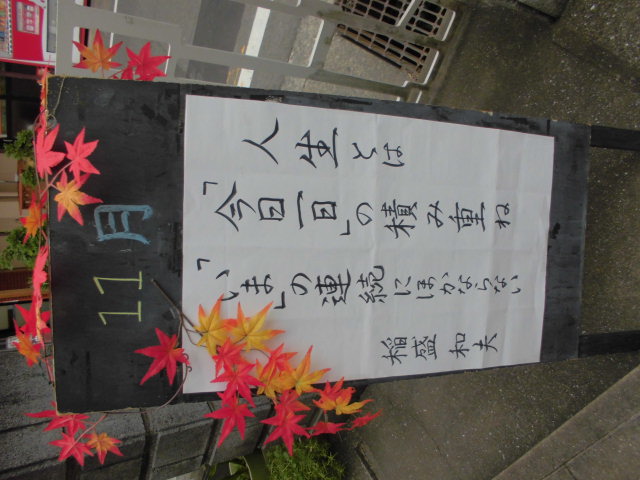 11月
人生とは
「今日一日」の積み重ね
「いま」の連続にほかならない
稲盛和夫